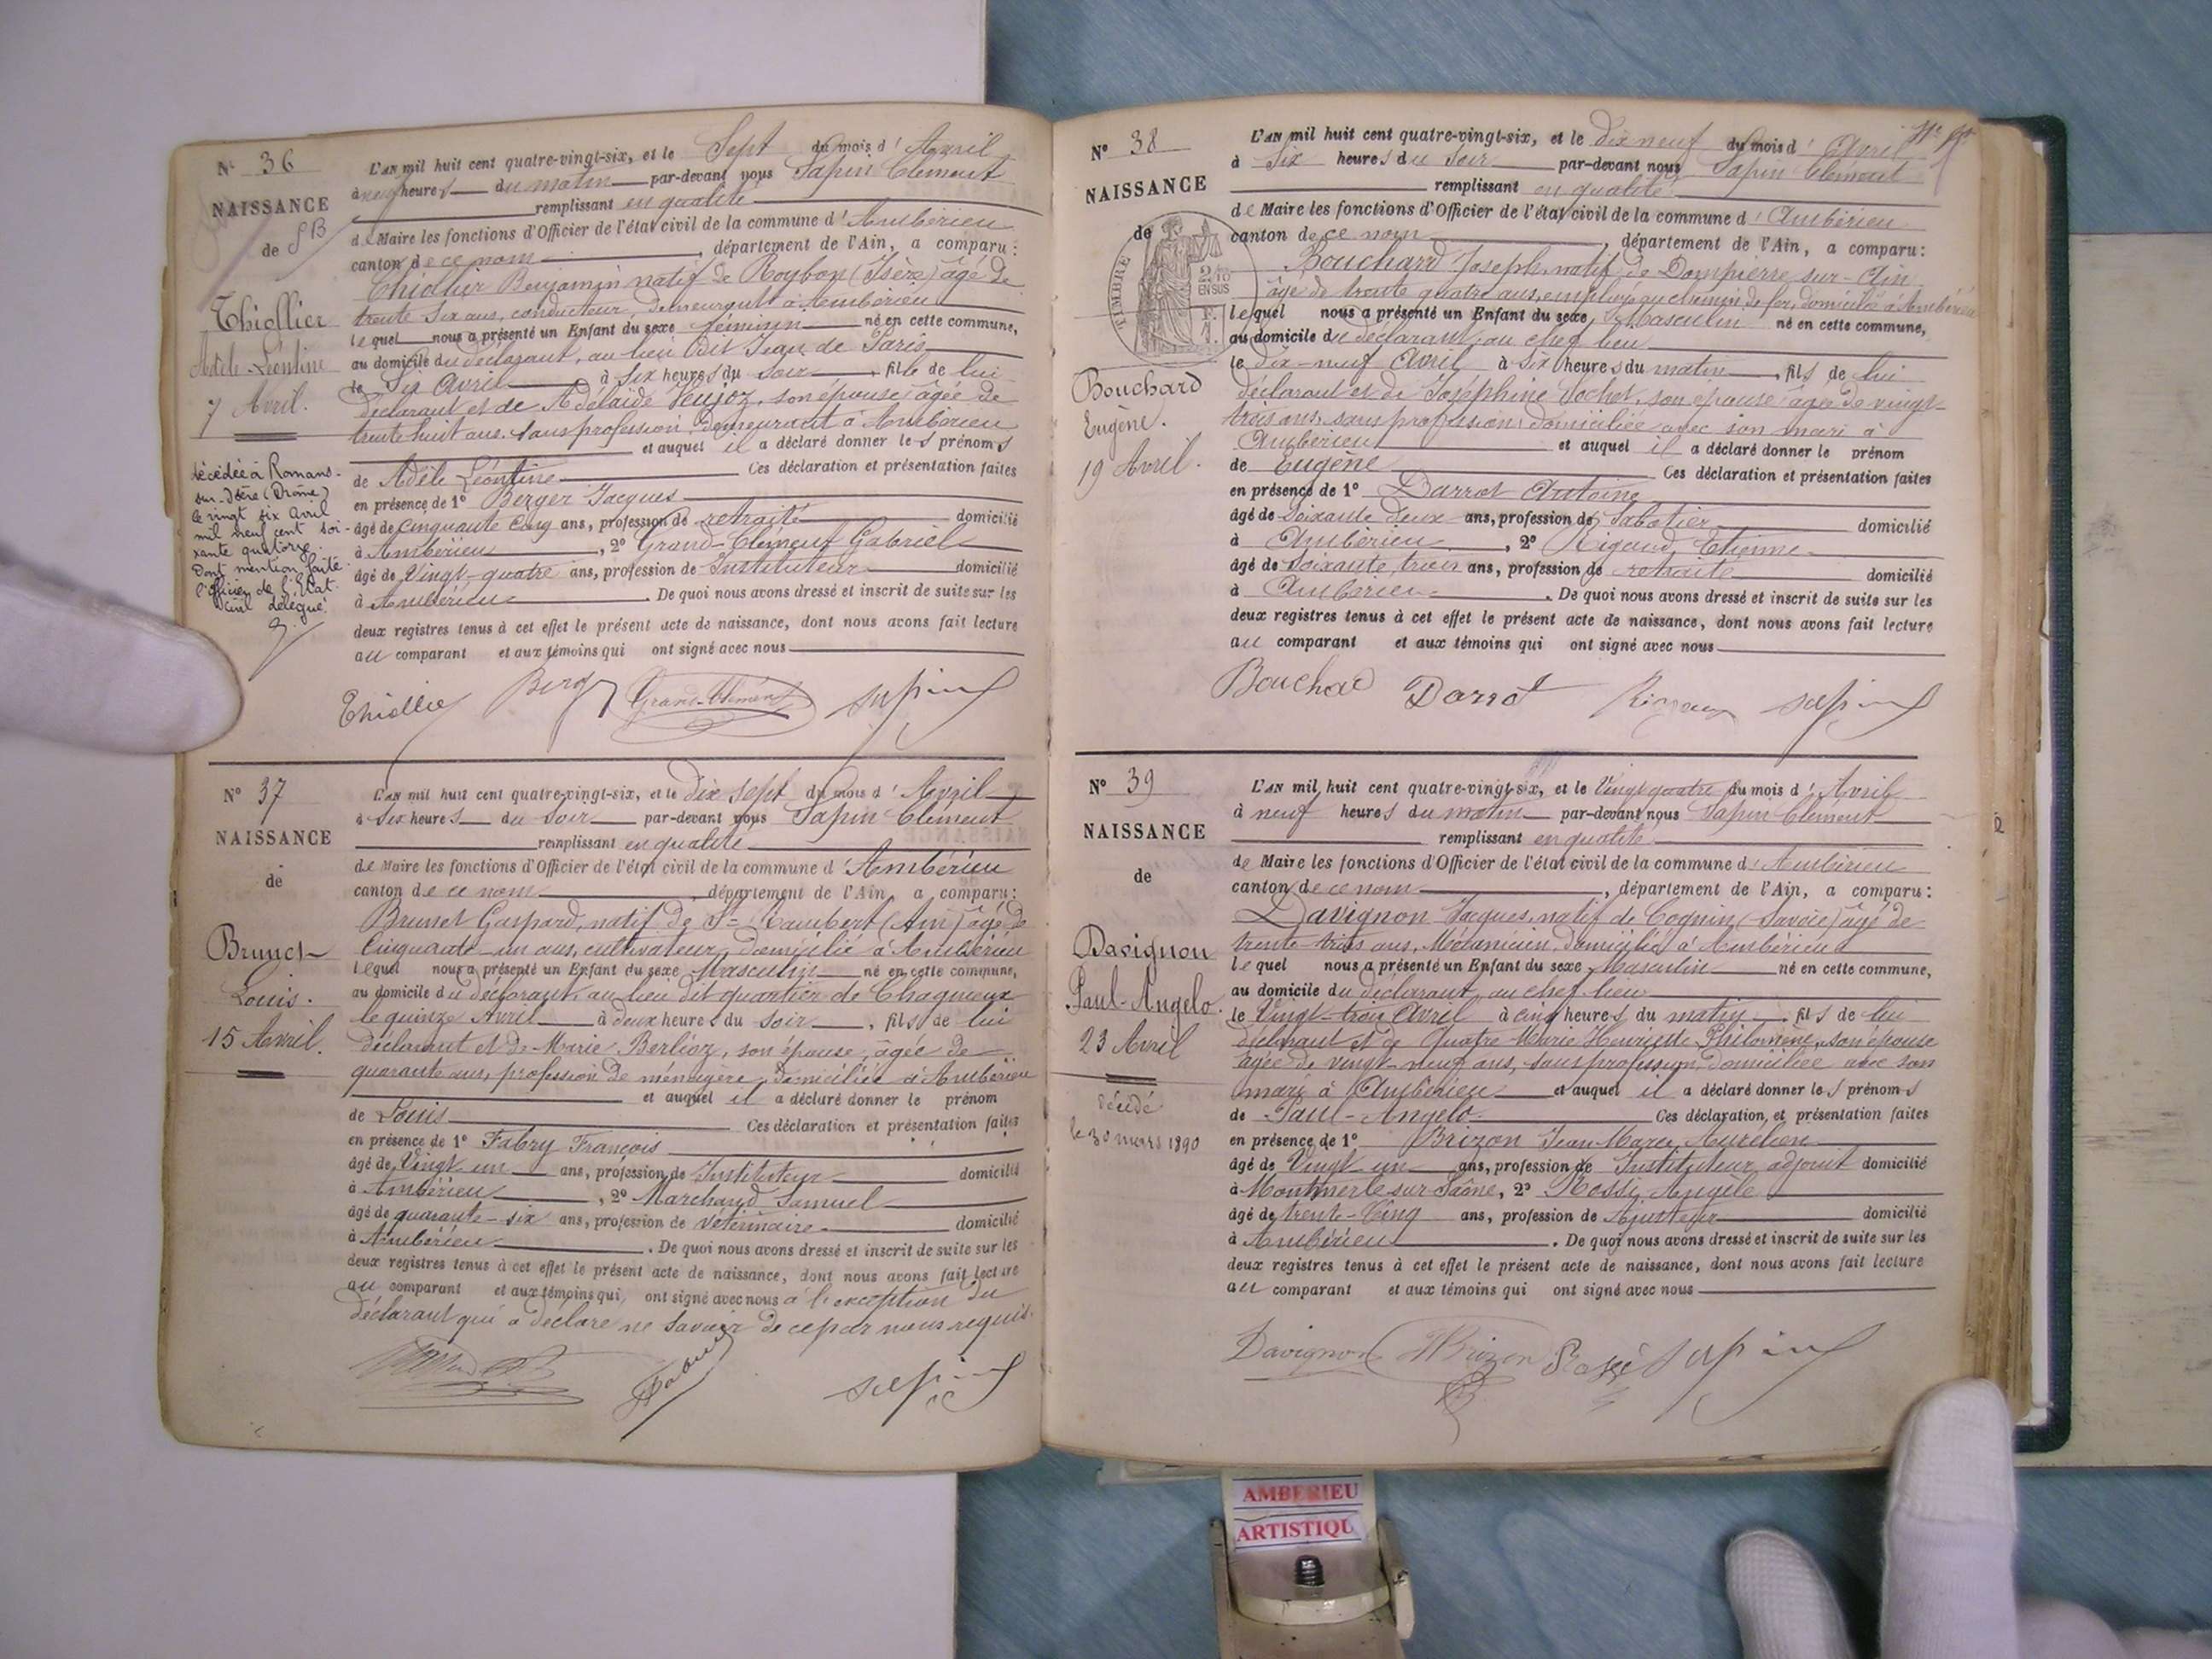 N° 36
NAISSANCE
de
Thiollier
Adèle Léontine
7 Avril.
décédée à Romans-
sur-Isère (Drôme)
le vingt six Avril
mil neuf cent soi-
xante quatorze.
Dont mention faite
l'Officier de l'Etat-
civil délégué
L'AN mil huit cent quatre-vingt-six, et le Sept du mois d'Avril
à neuf heures du matin par-devant nous Sapin Clément
remplissant en qualité
de Maire les fonctions d'Officier de l'état civil de la commune d'Ambérieu
canton de ce nom, département de l'Ain, a comparu:
Thiollier Benjamin natif de Roybon (Isère) âgé de
trente six ans, conducteur, demeurant à Ambérieu
lequel nous a présenté un Enfant du sexe féminin né en cette commune,
au domicile du déclarant, au lieu dit Jean de Paris
le Six Avril à Six heures du Soir, fille de lui
déclarant et de Adélaïde Veujoz, son épouse, âgée de
trente huit ans, sans profession, demeurant à Ambérieu
et auquel il a déclaré donner les prénoms
de Adèle Léontine Ces déclaration et présentation faites
en présence de 1° Berger Jacques
âgé de cinquante cinq ans, profession de retraité domicilié
à Ambérieu, 2° Grand-Clément Gabriel
âgé de Vingt-quatre ans, profession de Instituteur domicilié
à Ambérieu. De quoi nous avons dressé et inscrit de suite sur les
deux registres tenus à cet effet le présent acte de naissance, dont nous avons fait lecture
au comparant et aux témoins qui ont signé avec nous
Thiollier Berger Grand-Clément Sapin
N° 37
NAISSANCE
de
Brunet
Louis.
15 Avril.
L'AN mil huit cent quatre-vingt-six, et le dix sept du mois d'Avril
à six heures du soir par-devant nous Sapin Clément
remplissant en qualité
de Maire les fonctions d'Officier de l'état civil de la commune d'Ambérieu
canton de ce nom, département de l'Ain, a comparu:
Brunet Gaspard, natif de St Rambert (Ain) âgé de
Cinquante-un ans, cultivateur, domicilié à Ambérieu
lequel nous a présenté un Enfant du sexe Masculin né en cette commune,
au domicile du déclarant, au lieu dit quartier de Chagneux
le quinze Avril à deux heures du soir, fils de lui
déclarant et de Marie Berlioz, son épouse, âgée de
quarante ans, profession de ménagère, domiciliée à Ambérieu
et auquel il a déclaré donner le prénom
de Louis Ces déclaration et présentation faites
en présence de 1° Fabry François
âgé de Vingt un ans, profession de Instituteur domicilié
à Ambérieu, 2° Marchand Samuel
âgé de quarante-six ans, profession de vétérinaire domicilié
à Ambérieu. De quoi nous avons dressé et inscrit de suite sur les
deux registres tenus à cet effet le présent acte de naissance, dont nous avons fait lecture
au comparant et aux témoins qui ont signé avec nous à l'exception du
déclarant qui a déclaré ne savoir de ce par nous requis.
Sapin
N° 38
NAISSANCE
de
TIMBRE
2/10
EN SUS
Bouchard
Eugène.
19 Avril.
L'AN mil huit cent quatre-vingt-six, et le dix neuf du mois d'Avril
à six heures du soir par-devant nous Sapin Clément
remplissant en qualité
de Maire les fonctions d'Officier de l'état civil de la commune d'Ambérieu
canton de ce nom, département de l'Ain, a comparu:
Bouchard Joseph, natif de Dompierre-sur-Ain
âgé de trente quatre ans, employé au chemin de fer, domicilié à Ambérieu
lequel nous a présenté un Enfant du sexe Masculin né en cette commune,
au domicile du déclarant, au chef lieu
le dix-neuf Avril à six heures du matin, fils de lui
déclarant et de Joséphine Sochet, son épouse, âgée de vingt-
trois ans, sans profession, domiciliée avec son mari à
Ambérieu et auquel il a déclaré donner le prénom
de Eugène Ces déclaration et présentation faites
en présence de 1° Darrot Antoine
âgé de Soixante deux ans, profession de Sabotier domicilié
à Ambérieu, 2° Rigaud Etienne
âgé de Soixante trois ans, profession de retraité domicilié
à Ambérieu. De quoi nous avons dressé et inscrit de suite sur les
deux registres tenus à cet effet le présent acte de naissance, dont nous avons fait lecture
au comparant et aux témoins qui ont signé avec nous
Bouchard Darrot Rigaud Sapin
N° 39
NAISSANCE
de
Davignon
Paul-Angelo.
23 Avril
Décédé
le 30 mars 1890
L'AN mil huit cent quatre-vingt-six, et le Vingt quatre du mois d'Avril
à neuf heures du matin par-devant nous Sapin Clément
remplissant en qualité
de Maire les fonctions d'Officier de l'état civil de la commune d'Ambérieu
canton de ce nom, département de l'Ain, a comparu:
Davignon Jacques, natif de Cognin (Savoie) âgé de
trente-trois ans, Mécanicien, domicilié à Ambérieu
lequel nous a présenté un Enfant du sexe Masculin né en cette commune,
au domicile du déclarant, au chef lieu
le Vingt-trois Avril à cinq heures du matin, fils de lui
déclarant et de Quatre Marie Henriette Philomène, son épouse
âgée de vingt-neuf ans, sans profession, domiciliée avec son
mari à Ambérieu et auquel il a déclaré donner les prénoms
de Paul-Angelo Ces déclaration et présentation faites
en présence de 1° Brizon Jean Marie Aurélien
âgé de Vingt un ans, profession de Instituteur adjoint domicilié
à Montmerle sur Saône, 2° Rossi Angèle
âgé de trente-cinq ans, profession de Ajusteur domicilié
à Ambérieu. De quoi nous avons dressé et inscrit de suite sur les
deux registres tenus à cet effet le présent acte de naissance, dont nous avons fait lecture
au comparant et aux témoins qui ont signé avec nous
Davignon Brizon Rossi Sapin
AMBERIEU
ARTISTIQU